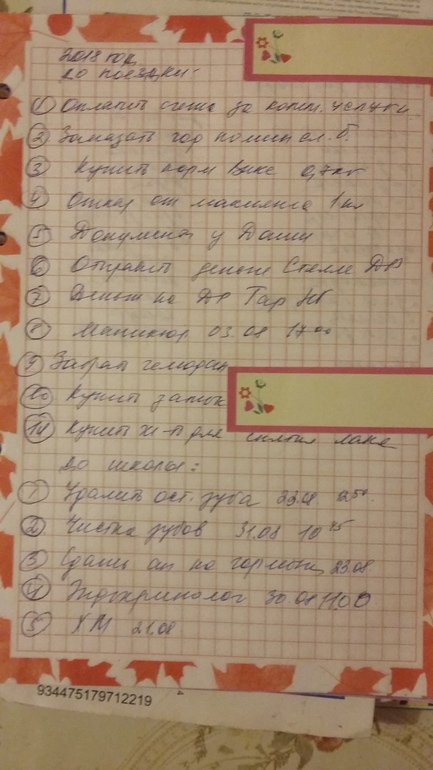 2018 год
до поездки:
① Оплатить счета за комм. услуги
② Заказать
③ Купить корм Вике 0,7 кг
④ Отказ от
⑤ Документы у Даши
⑥ Отправить деньги Стелле ДР
⑦ Деньги на ДР
⑧ Маникюр 03.08 17 00
⑨ Забрать чемодан
⑩ Купить
⑪ Купить для снятия лака
до школы:
① Удалить ост. зуба 23.08
② Чистка зубов 31.08 10 45
③ Сдать ан на гормоны 23.08
④ Эндокринолог 30.08 11.00
⑤ ХМ 21.08
934475179712219